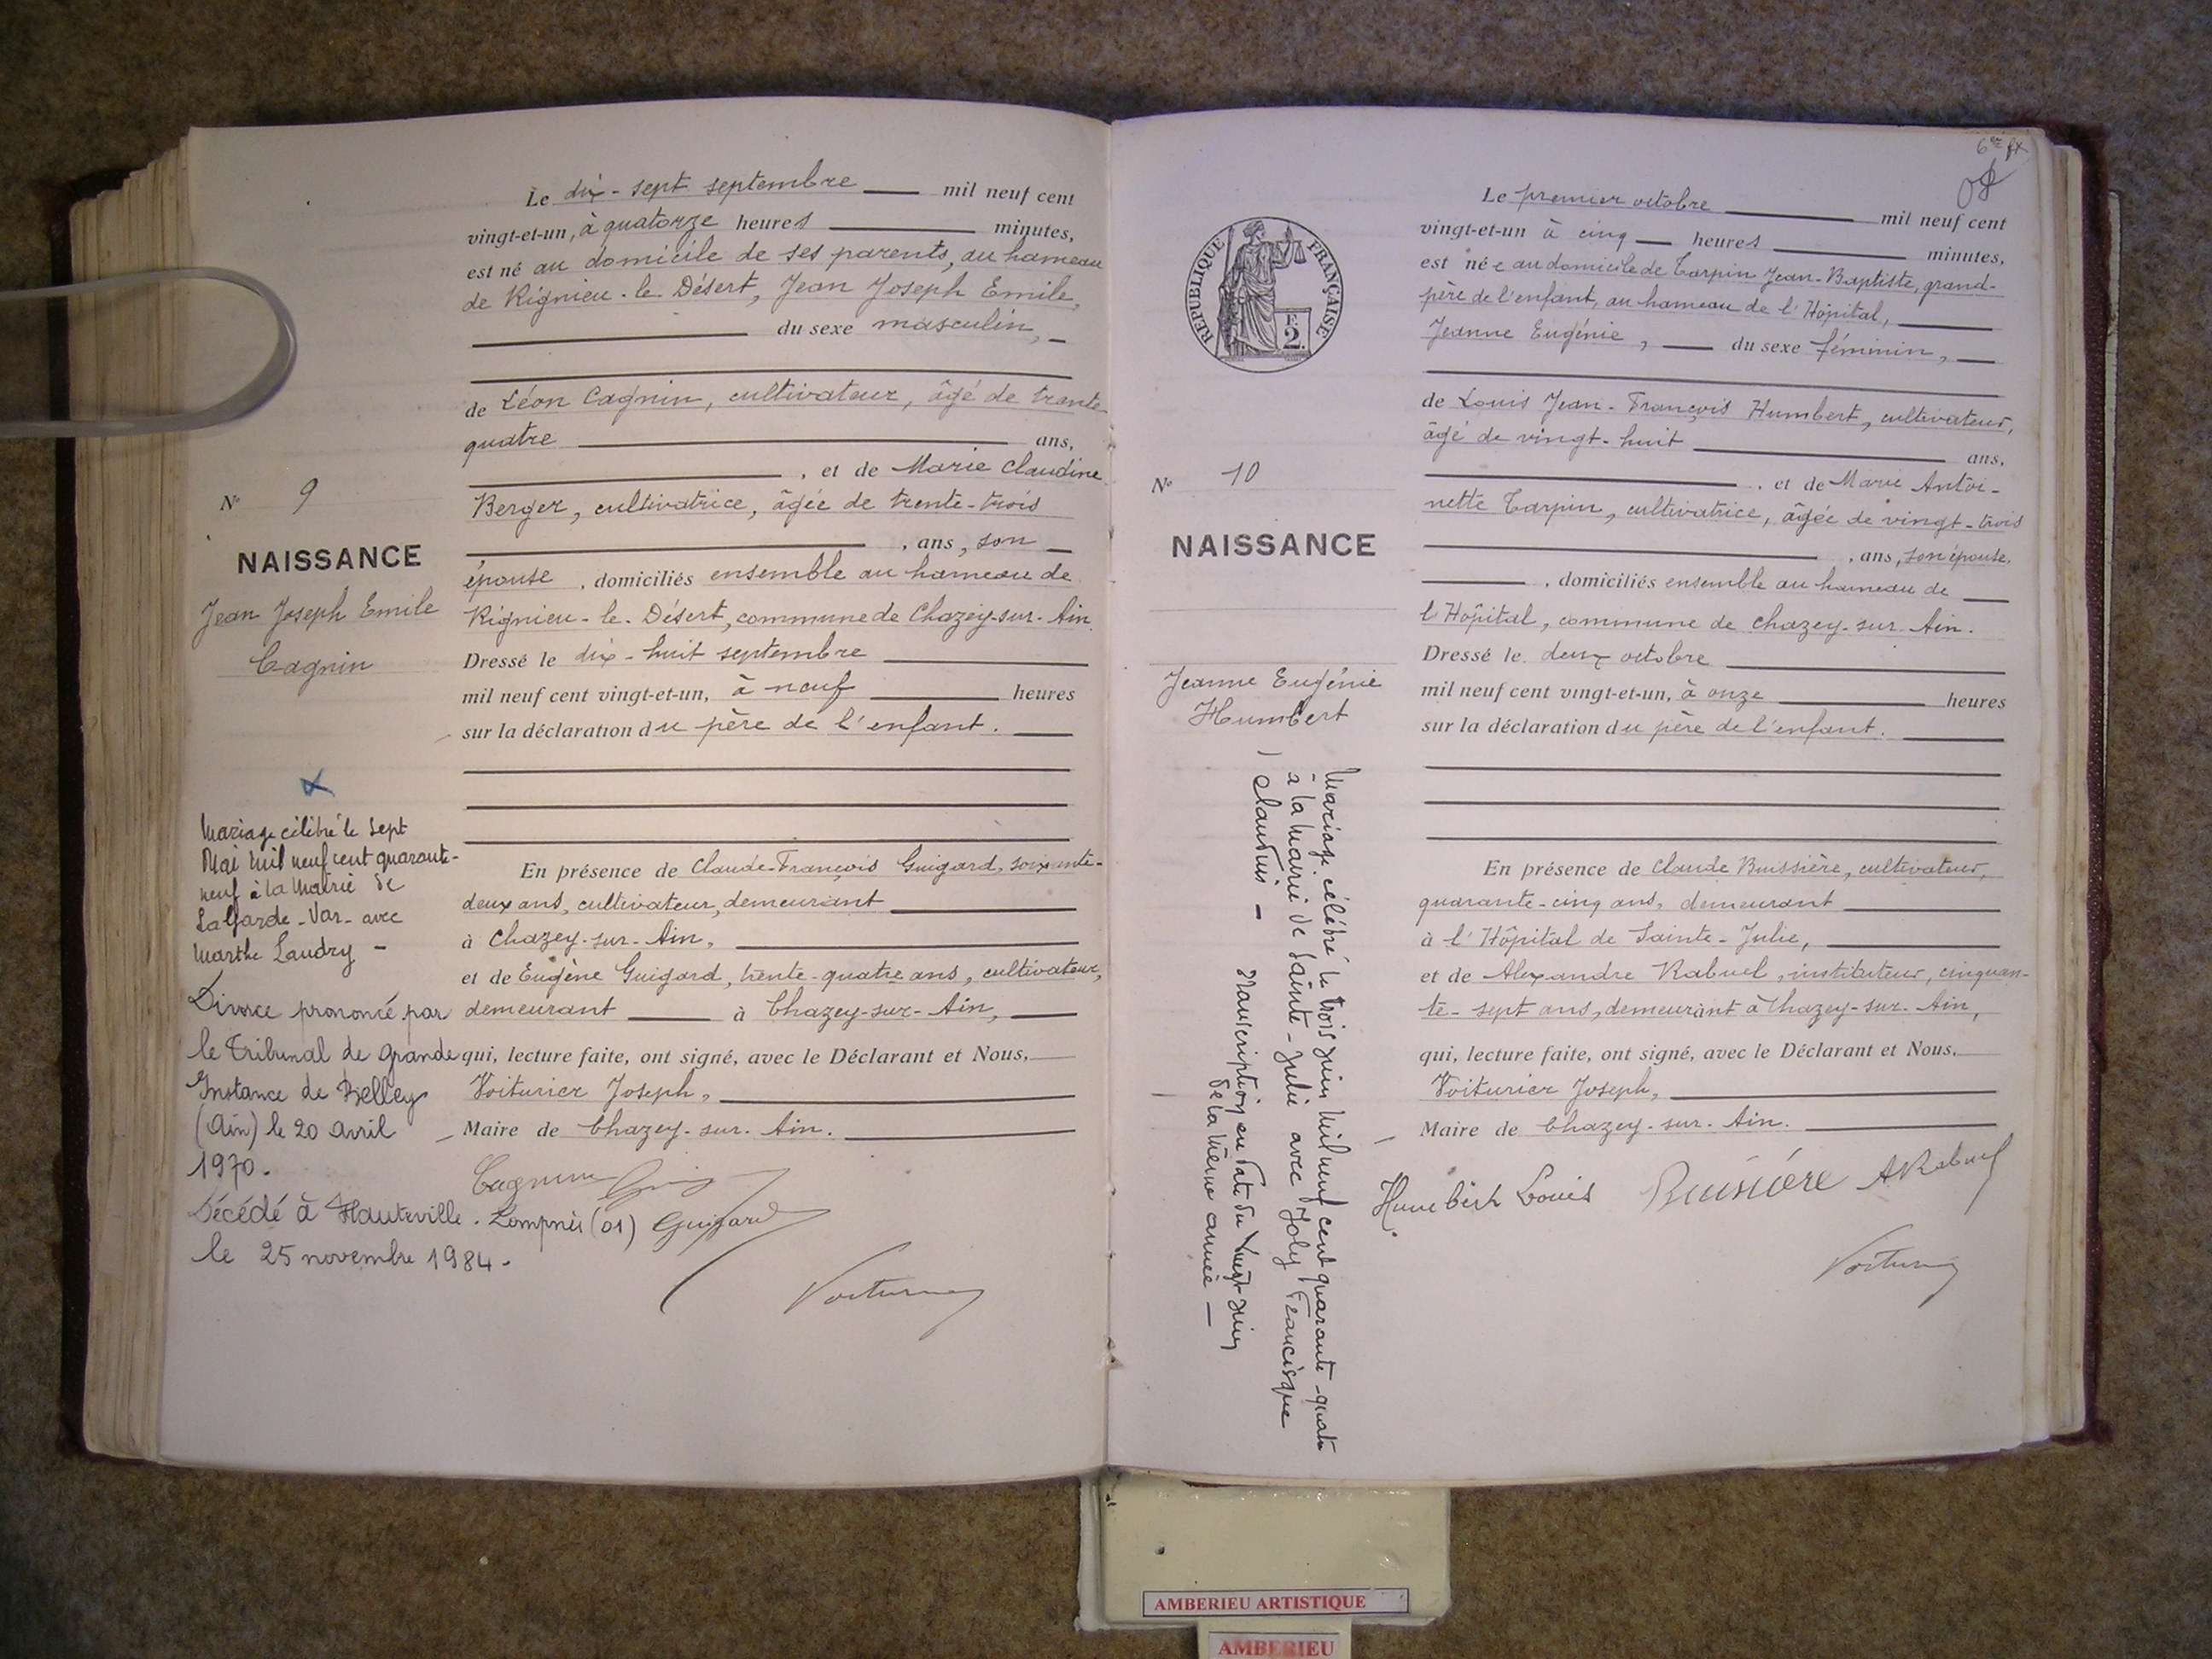 Le dix-sept septembre mil neuf cent
vingt-et-un, à quatorze heures minutes,
est né au domicile de ses parents, au hameau
de Rignieu-le-Désert, Jean Joseph Emile,
du sexe masculin,
de Léon Cagnin, cultivateur, âgé de trente-
quatre ans,
, et de Marie Claudine
Berger, cultivatrice, âgée de trente-trois
, ans, son
épouse, domiciliés ensemble au hameau de
Rignieu-le-Désert, commune de Chazey-sur-Ain.
Dressé le dix-huit septembre
mil neuf cent vingt-et-un, à neuf heures
sur la déclaration du père de l'enfant.
En présence de Claude-François Guigard, soixante-
deux ans, cultivateur, demeurant
à Chazey-sur-Ain,
et de Eugène Guigard, trente-quatre ans, cultivateur,
demeurant à Chazey-sur-Ain,
qui, lecture faite, ont signé, avec le Déclarant et Nous,
Voiturier Joseph,
Maire de Chazey-sur-Ain.
Cagnin
Guigard
Voiturier
N° 9
NAISSANCE
Jean Joseph Emile
Cagnin
Mariage célébré le sept
Mai mil neuf cent quarante-
neuf à la Mairie de
La Garde-Var- avec
Marthe Laudry -
Divorce prononcé par
le Tribunal de Grande
Instance de Belley
(Ain) le 20 Avril
1970.
Décédé à Hauteville-Lompnès (01)
le 25 novembre 1984.
Le premier octobre mil neuf cent
vingt-et-un à cinq heures minutes,
est née au domicile de Tarpin Jean-Baptiste, grand-
père de l'enfant, au hameau de l'Hôpital,
Jeanne Eugénie, du sexe féminin,
de Louis Jean-François Humbert, cultivateur,
âgé de vingt-huit ans,
, et de Marie Antoi-
nette Tarpin, cultivatrice, âgée de vingt-trois
, ans, son épouse,
, domiciliés ensemble au hameau de
l'Hôpital, commune de Chazey-sur-Ain.
Dressé le deux octobre
mil neuf cent vingt-et-un, à onze heures
sur la déclaration du père de l'enfant.
En présence de Claude Buissière, cultivateur,
quarante-cinq ans, demeurant
à l'Hôpital de Sainte-Julie,
et de Alexandre Rabuel, instituteur, cinquan-
te-sept ans, demeurant à Chazey-sur-Ain,
qui, lecture faite, ont signé, avec le Déclarant et Nous,
Voiturier Joseph,
Maire de Chazey-sur-Ain.
Humbert Louis Buissière A Rabuel
Voiturier
REPUBLIQUE FRANÇAISE
F.
2.
N° 10
NAISSANCE
Jeanne Eugénie
Humbert
Mariage célébré le trois juin mil neuf cent quarante-quatre
à la Mairie de Sainte-Julie avec Joly Francisque
Claudius -
Transcription en date du vingt juin
de la même année -
AMBERIEU ARTISTIQUE
AMBERIEU